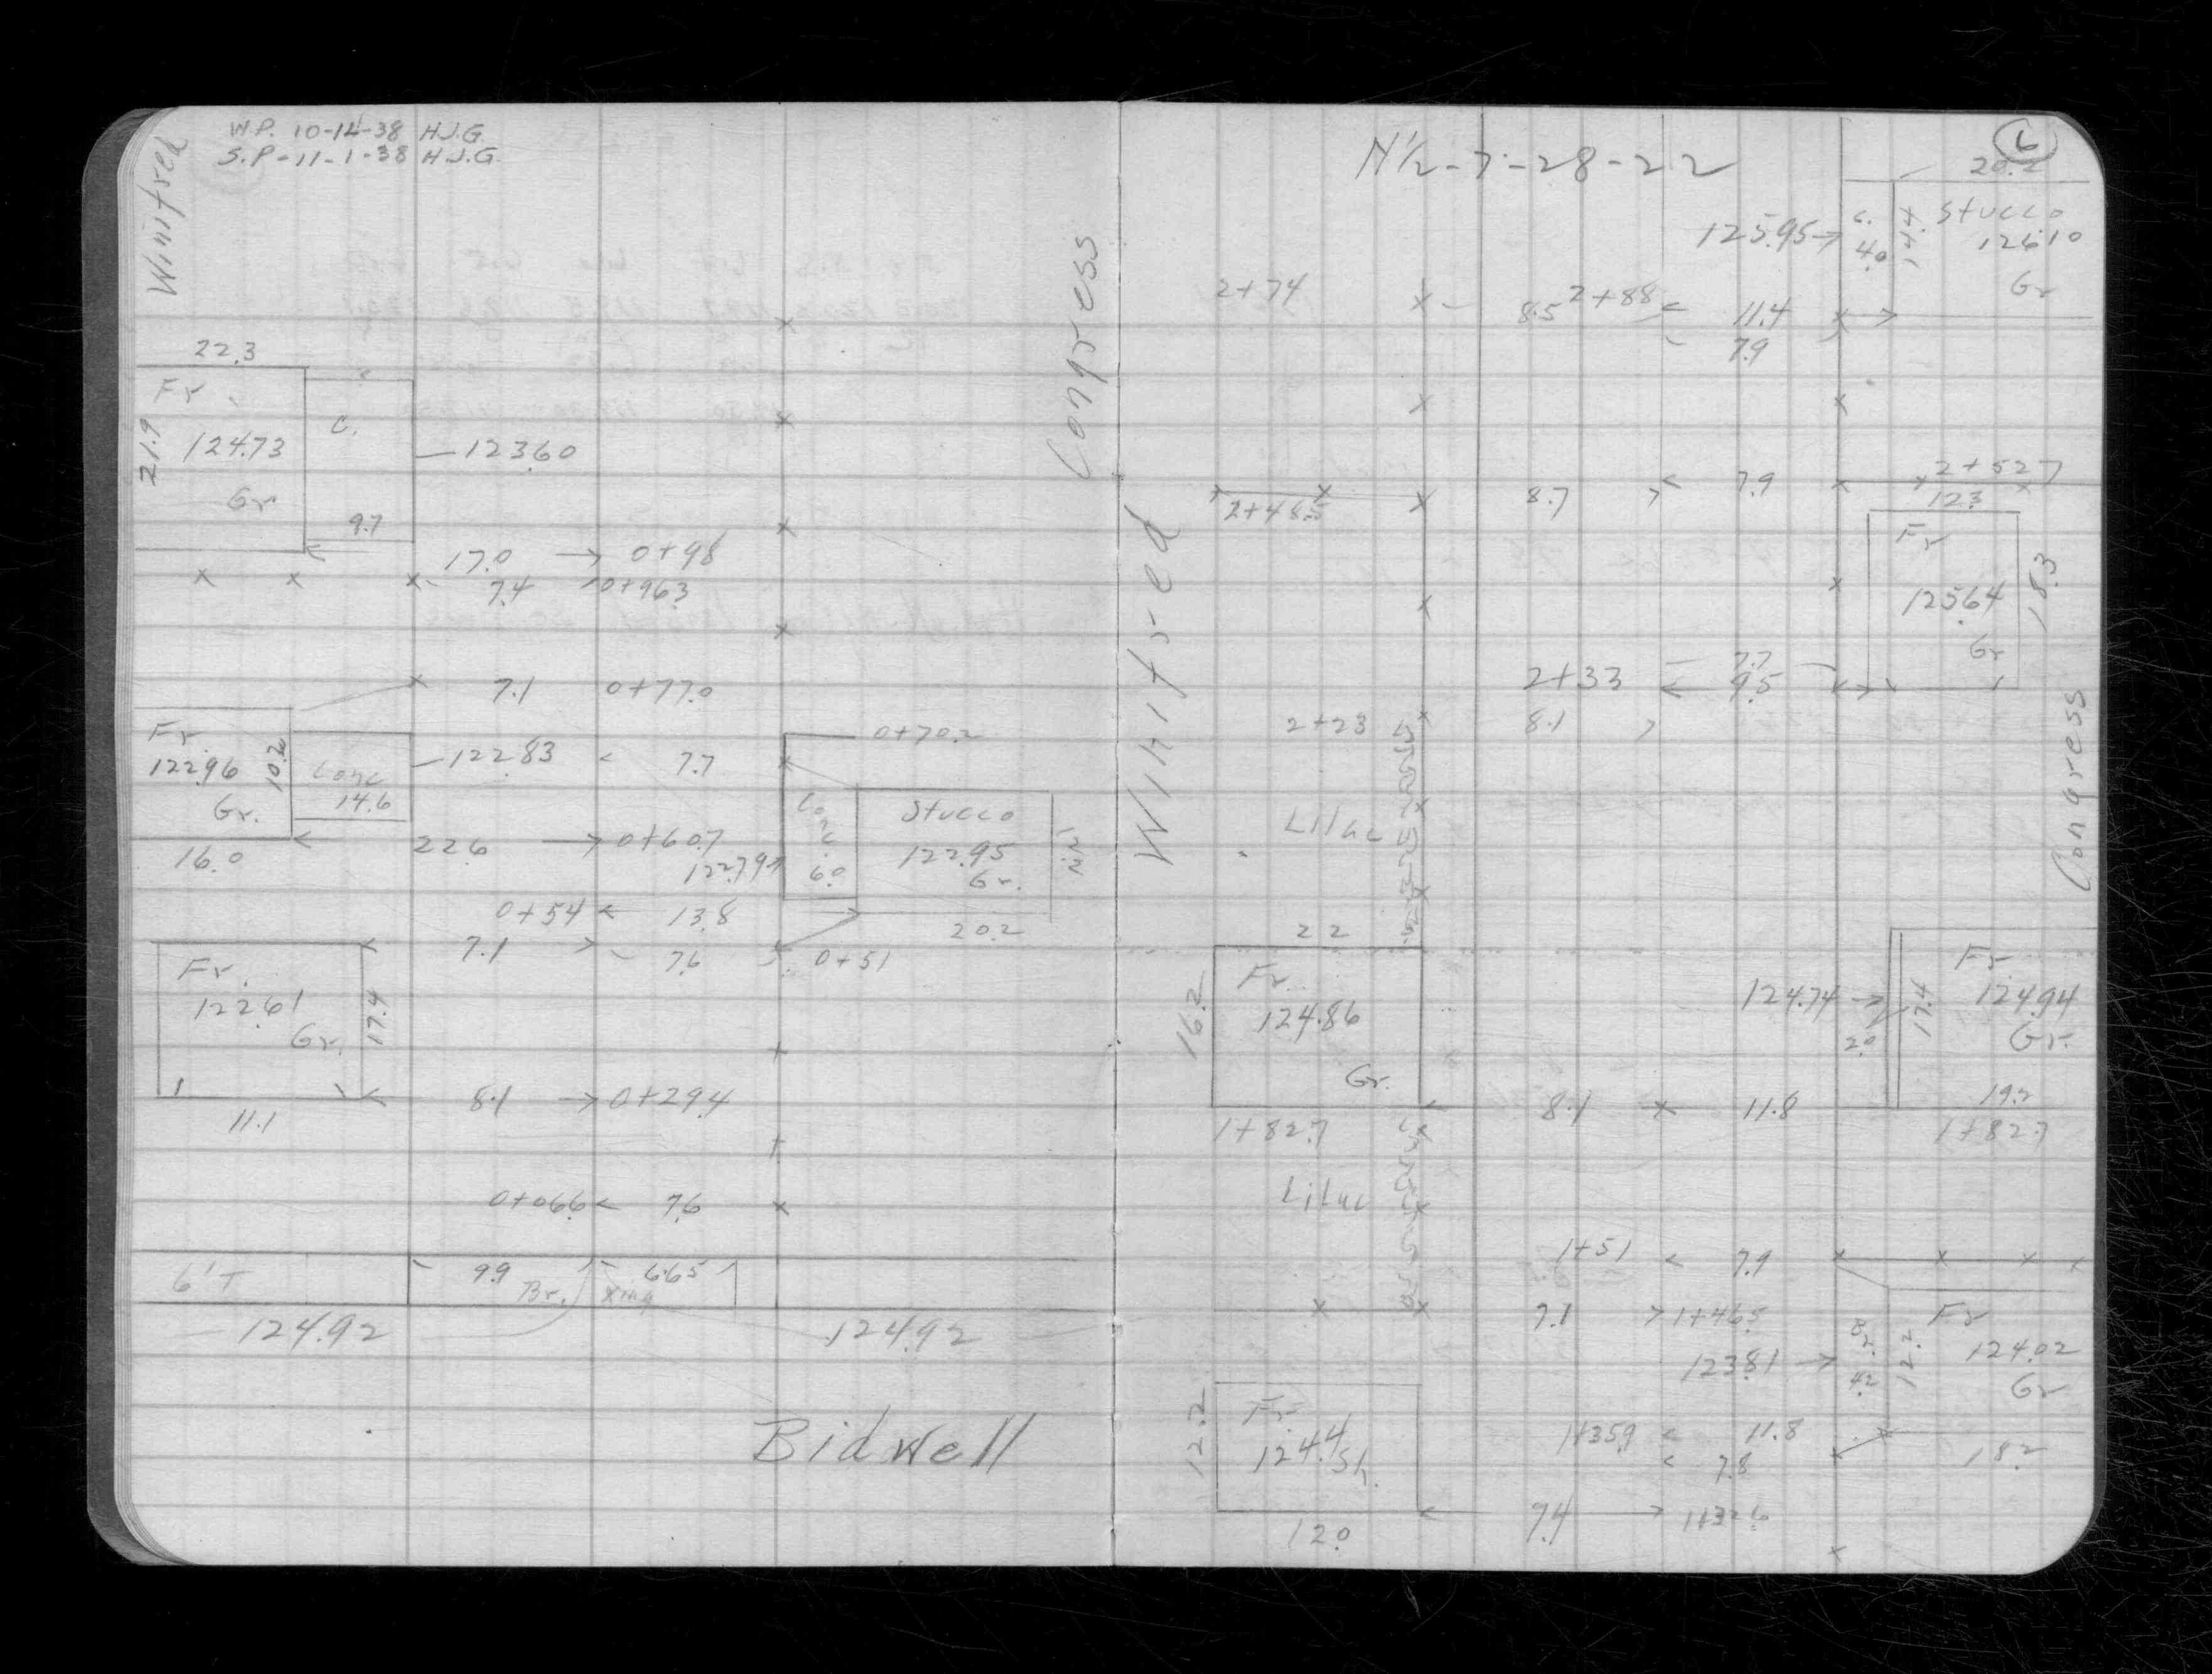 W.P. 10-14-38 H.J.G.
S.P-11-1-38 H.J.G.
Winifred
Congress
22.3
Fr
21.9
124.73
Gr
C.
9.7
123.60
17.0 → 0+98
7.4 0+96.3
7.1 0+77.0
Fr.
122.96
10.2
Gr.
Conc
14.6
16.0
122.83 < 7.7
0+70.2
22.6 → 0+60.7
122.79
Conc.
6.0
Stucco
122.95
Gr.
12.2
20.2
0+54 < 13.8
7.1 > 7.6
0+51
Fr.
122.61
Gr.
17.4
11.1
8.1 → 0+29.4
0+06.6 < 7.6
6'T
9.9
Br.
6.65
Xing
124.92
124.92
Bidwell
N½-7-28-22
6
20.2
125.95→
C.
4.0
14.4
Stucco
126.10
Gr
2+74
8.5
2+88 < 11.4
7.9
Winifred
Congress
2+48.5
8.7 > < 7.9
2+52.7
12.3
Fr
125.64
Gr
18.3
7.7
2+33 < 9.5
2+23
8.1 >
Lilac
22
Fr.
16.2
124.86
Gr.
124.74 →
2.0
17.4
Fr.
124.94
Gr.
19.2
8.1 11.8
1+82.7
1+82.7
Lilac
1+51 < 7.9
7.1 > 1+46.5
123.81 →
Br.
4.2
12.2
Fr
124.02
Gr
18.2
12.2
Fr.
124.4
Sh.
12.0
1+35.9 < 11.8
< 7.8
7.4 → 1+32.6